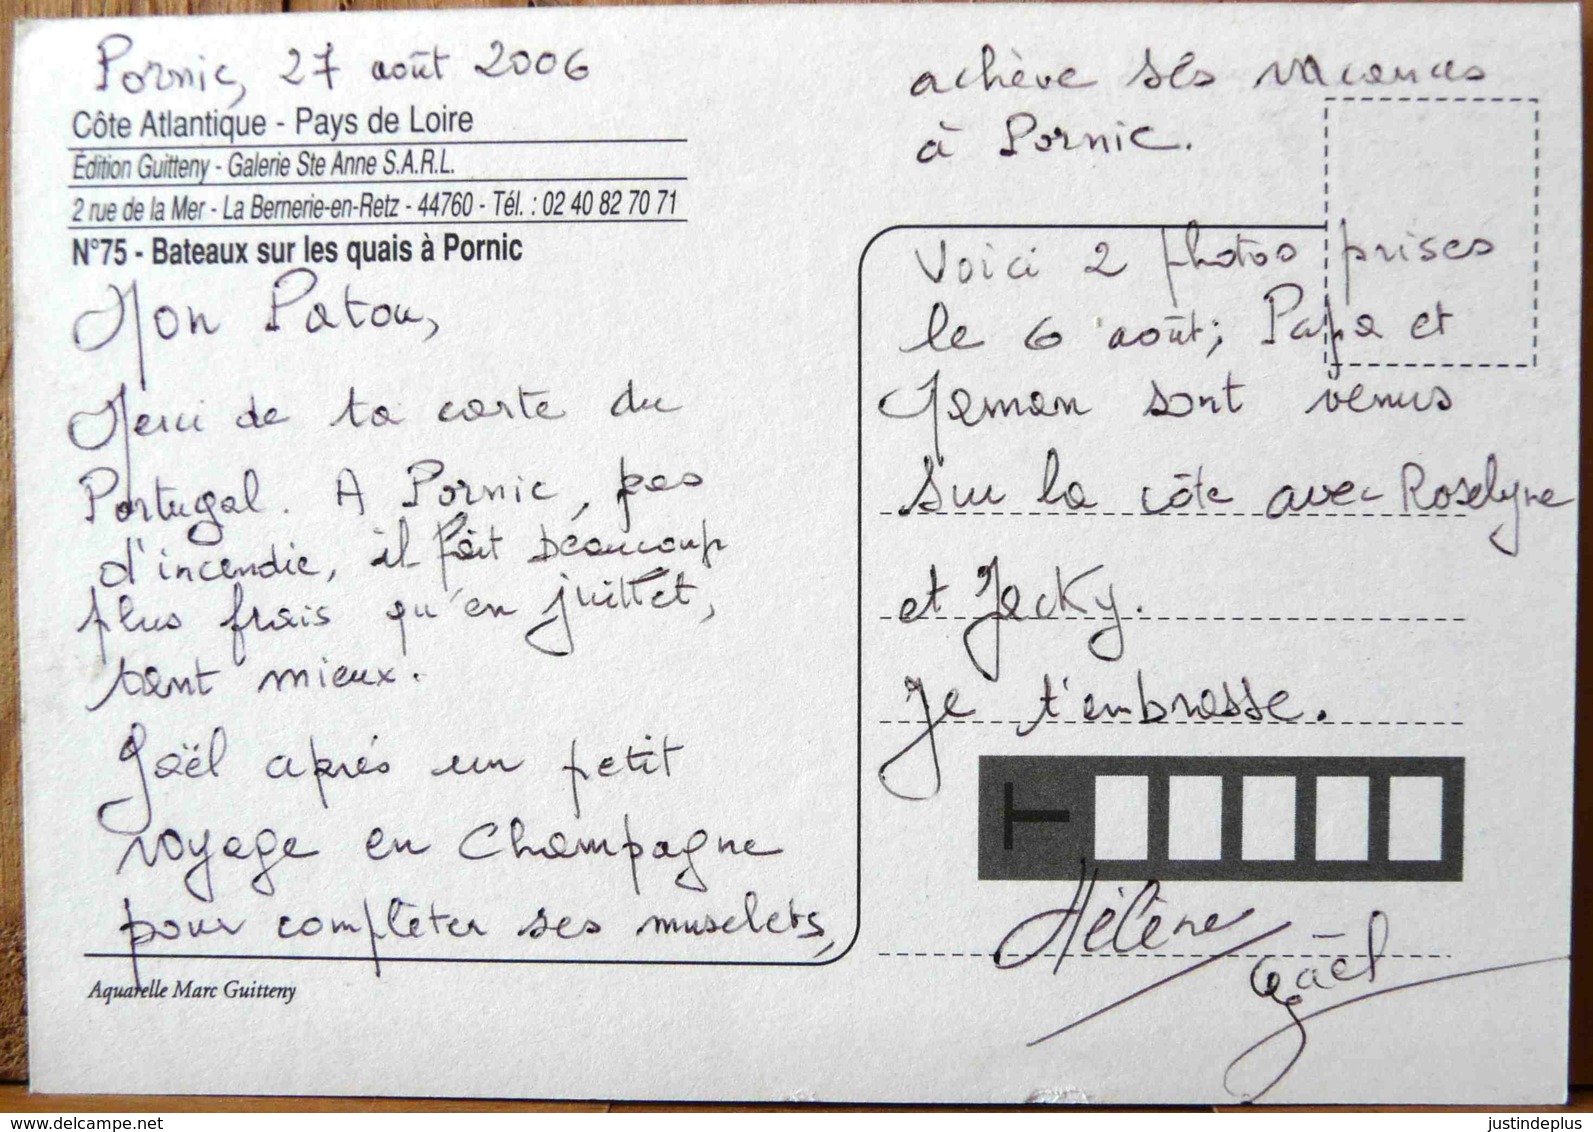 Pornic, 27 août 2006
Côte Atlantique - Pays de Loire
Édition Guitteny - Galerie Ste Anne S.A.R.L.
2 rue de la Mer - La Bernerie-en-Retz - 44760 - Tél. : 02 40 82 70 71
N°75 - Bateaux sur les quais à Pornic
Mon Patou,
Merci de ta carte du
Portugal. A Pornic, pas
d'incendie, il fait beaucoup
plus frais qu'en juillet,
tant mieux.
Gaël après un petit
voyage en Champagne
pour compléter ses muselets,
Aquarelle Marc Guitteny
achève ses vacances
à Pornic.
Voici 2 photos prises
le 6 août; Papa et
Maman sont venus
sur la côte avec Roselyne
et Jacky.
Je t'embrasse.
T
Hélène
Gaël
delcampe.net
justindeplus